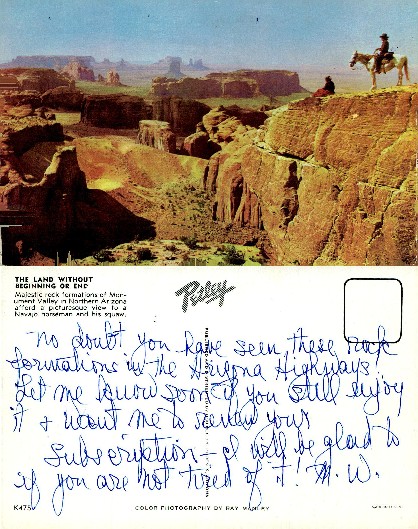 THE LAND WITHOUT
BEGINNING OR END
Majestic rock formations of Mon-
ument Valley in Northern Arizona
afford a picturesque view to a
Navajo horseman and his squaw.
Petley
no doubt you have seen these rock
formations in the Arizona Highways.
Let me know soon if you still enjoy
it & want me to renew your
subscription - I will be glad to
if you are not tired of it! M. W.
K475
COLOR PHOTOGRAPHY BY RAY MANLEY